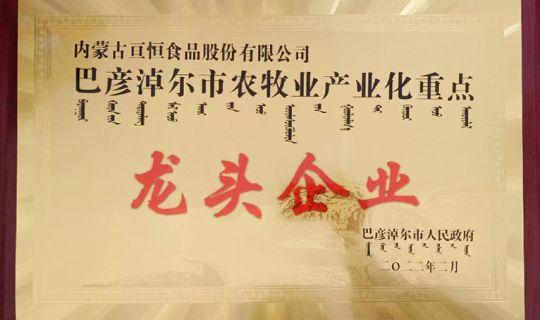 内蒙古亘恒食品股份有限公司
巴彦淖尔市农牧业产业化重点
龙头企业
巴彦淖尔市人民政府
二〇二二年二月